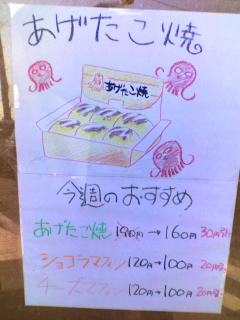 あげたこ焼
あげたこ焼
今週のおすすめ
あげたこ焼 190円→160円 30円引
ショコラマフィン 120円→100円 20円引
チーズマフィン 120円→100円 20円引